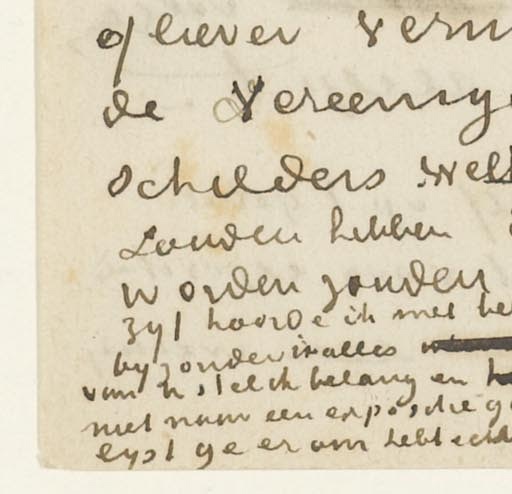 of liever vern
de Vereenig
schilders wel
zouden hebben
worden zouden
zyt hoorde ik met be
byzonder in alles
van U stel ik belang en
met naar een expositie g
eyst ge er om hebt echt